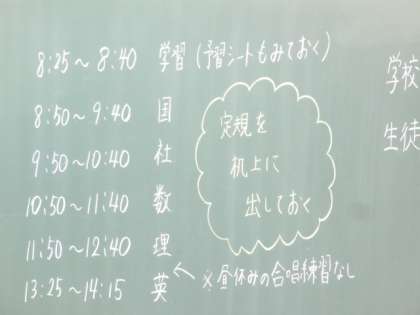 8:25～8:40 学習(予習シートもみておく)
8:50～9:40 国
9:50～10:40 社
10:50～11:40 数
11:50～12:40 理
13:25～14:15 英 ← ※昼休みの合唱練習なし
定規を
机上に
出しておく
学校
生徒